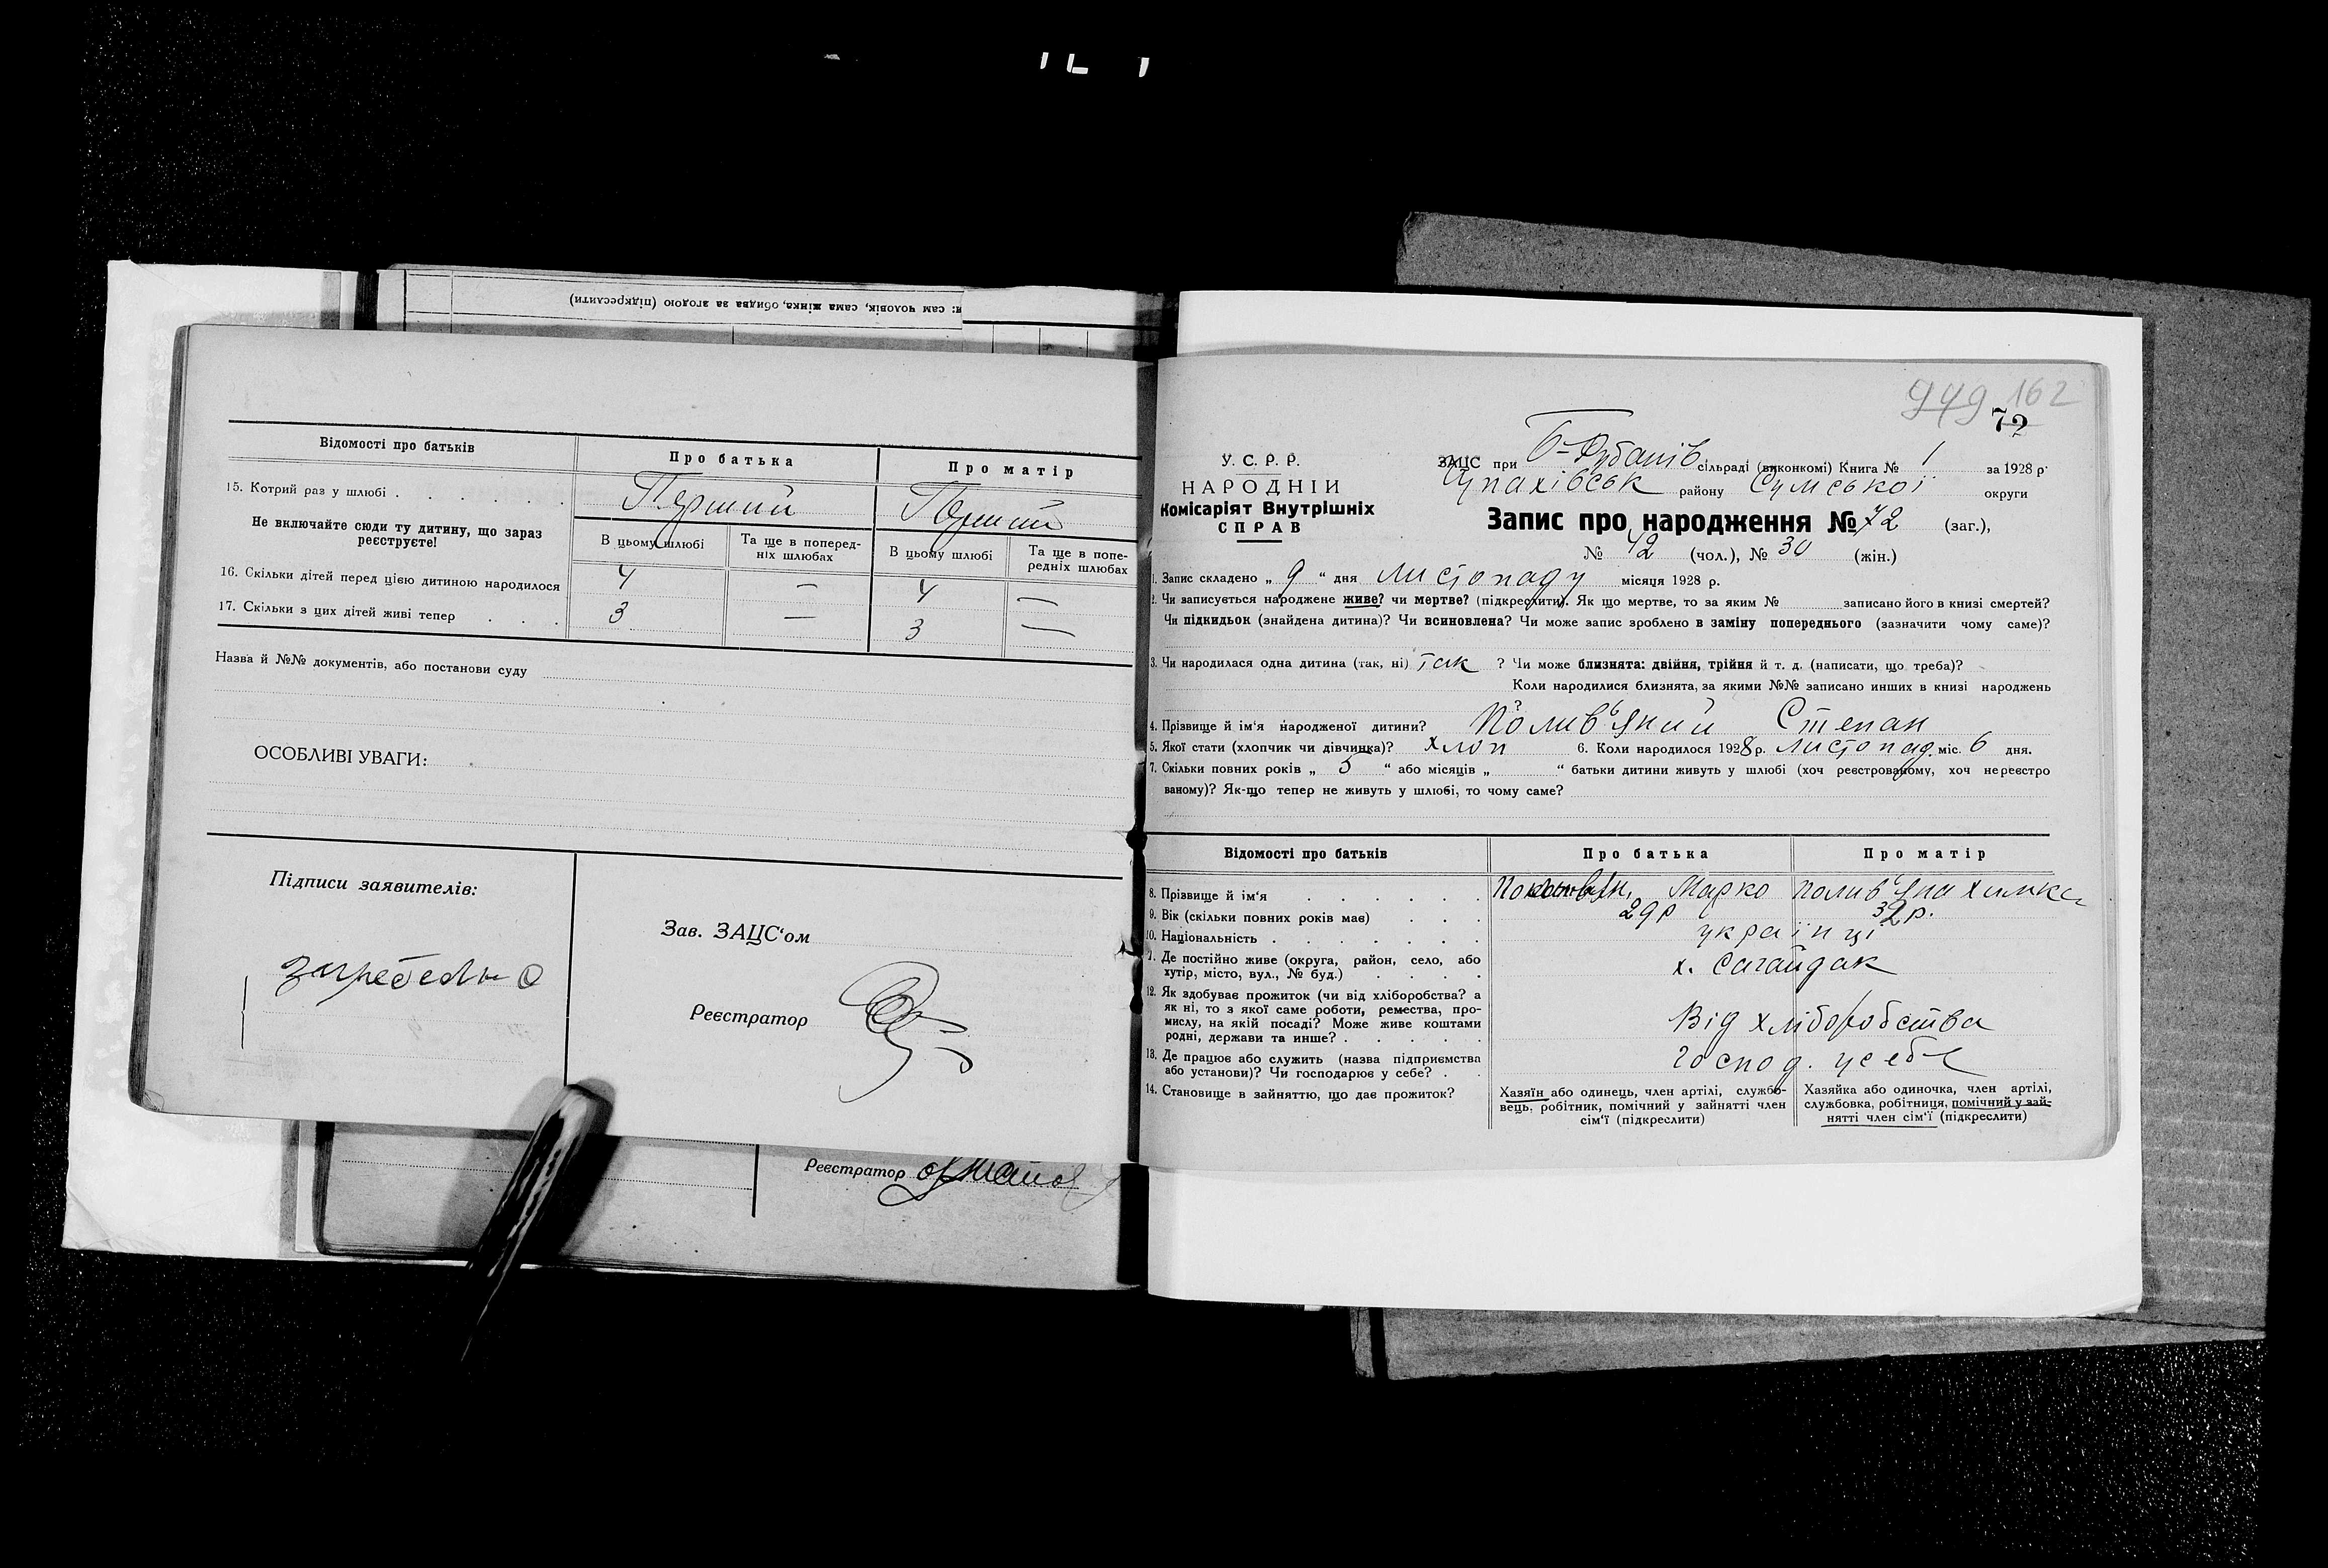 я: сам чоловік, сама жінка, обидва за згодою (підкреслити)
Відомості про батьків
Про батька
Про матір
15. Котрий раз у шлюбі
Перший
Перший
Не включайте сюди ту дитину, що зараз реєструєте!
В цьому шлюбі
Та ще в попередніх шлюбах
В цьому шлюбі
Та ще в попередніх шлюбах
16. Скільки дітей перед цією дитиною народилося
4 — 4 —
17. Скільки з цих дітей живі тепер
3 — 3 —
Назва й №№ документів, або постанови суду
ОСОБЛИВІ УВАГИ:
Підписи заявителів:
Зав. ЗАЦС‘ом
Реєстратор
Реєстратор
949 162
72
У. С. Р. Р.
НАРОДНІЙ
Комісаріят Внутрішніх
СПРАВ
ЗАЦС при сільраді (виконкомі) Книга № 1 за 1928 р.
району Сумської округи
Запис про народження № 72 (заг.),
№ 42 (чол.), № 30 (жін.)
1. Запис складено „ 9 “ дня листопаду місяця 1928 р.
2. Чи записується народжене живе? чи мертве? (підкреслити). Як що мертве, то за яким № записано його в книзі смертей?
Чи підкидьок (знайдена дитина)? Чи всиновлена? Чи може запис зроблено в заміну попереднього (зазначити чому саме)?
3. Чи народилася одна дитина (так, ні) так ? Чи може близнята: двійня, трійня й т. д. (написати, що треба)?
Коли народилися близнята, за якими №№ записано инших в книзі народжень
4. Прізвище й ім‘я народженої дитини? Полив‘яний Степан
5. Якої стати (хлопчик чи дівчинка)? хлоп 6. Коли народилося 1928 р. листопад. міс. 6 дня.
7. Скільки повних років „ 5 “ або місяців „ “ батьки дитини живуть у шлюбі (хоч реєстрованому, хоч нереєстро
ваному)? Як-що тепер не живуть у шлюбі, то чому саме?
Відомості про батьків
Про батька
Про матір
8. Прізвище й ім‘я
Марко
полив‘яна химка
9. Вік (скільки повних років має)
29р
32р.
10. Національність
українці
11. Де постійно живе (округа, район, село, або
хутір, місто, вул., № буд.)
х. Сагайдак
12. Як здобуває прожиток (чи від хліборобства? а
як ні, то з якої саме роботи, ремества, про-
мислу, на якій посаді? Може живе коштами
родні, держави та инше?
Від хліборобства
13. Де працює або служить (назва підприємства
або установи)? Чи господарює у себе?
господ. у себе
14. Становище в зайняттю, що дає прожиток?
Хазяїн або одинець, член артілі, службо-
вець, робітник, помічний у зайнятті член
сім‘ї (підкреслити)
Хазяйка або одиночка, член артілі,
службовка, робітниця, помічний у зай-
нятті член сім‘ї (підкреслити)